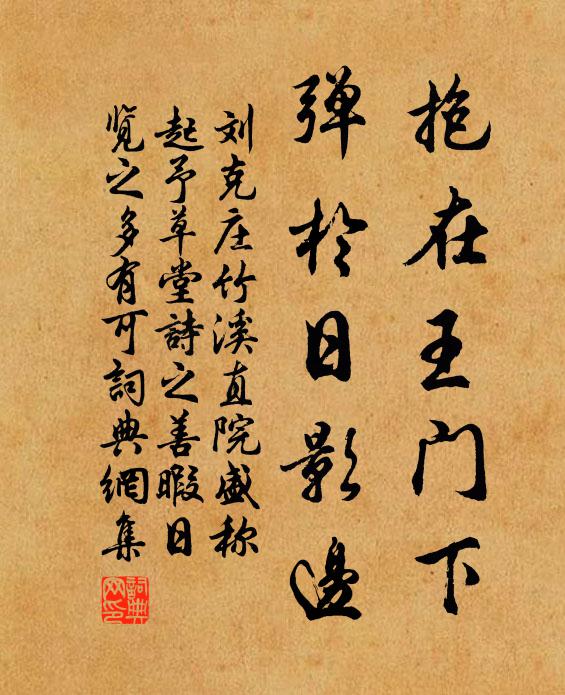 抱在王门下
弹於日影邊
刘克庄竹溪直院盛称
起予草堂詩之善暇日
览之多有可詞典網集
詞典網印